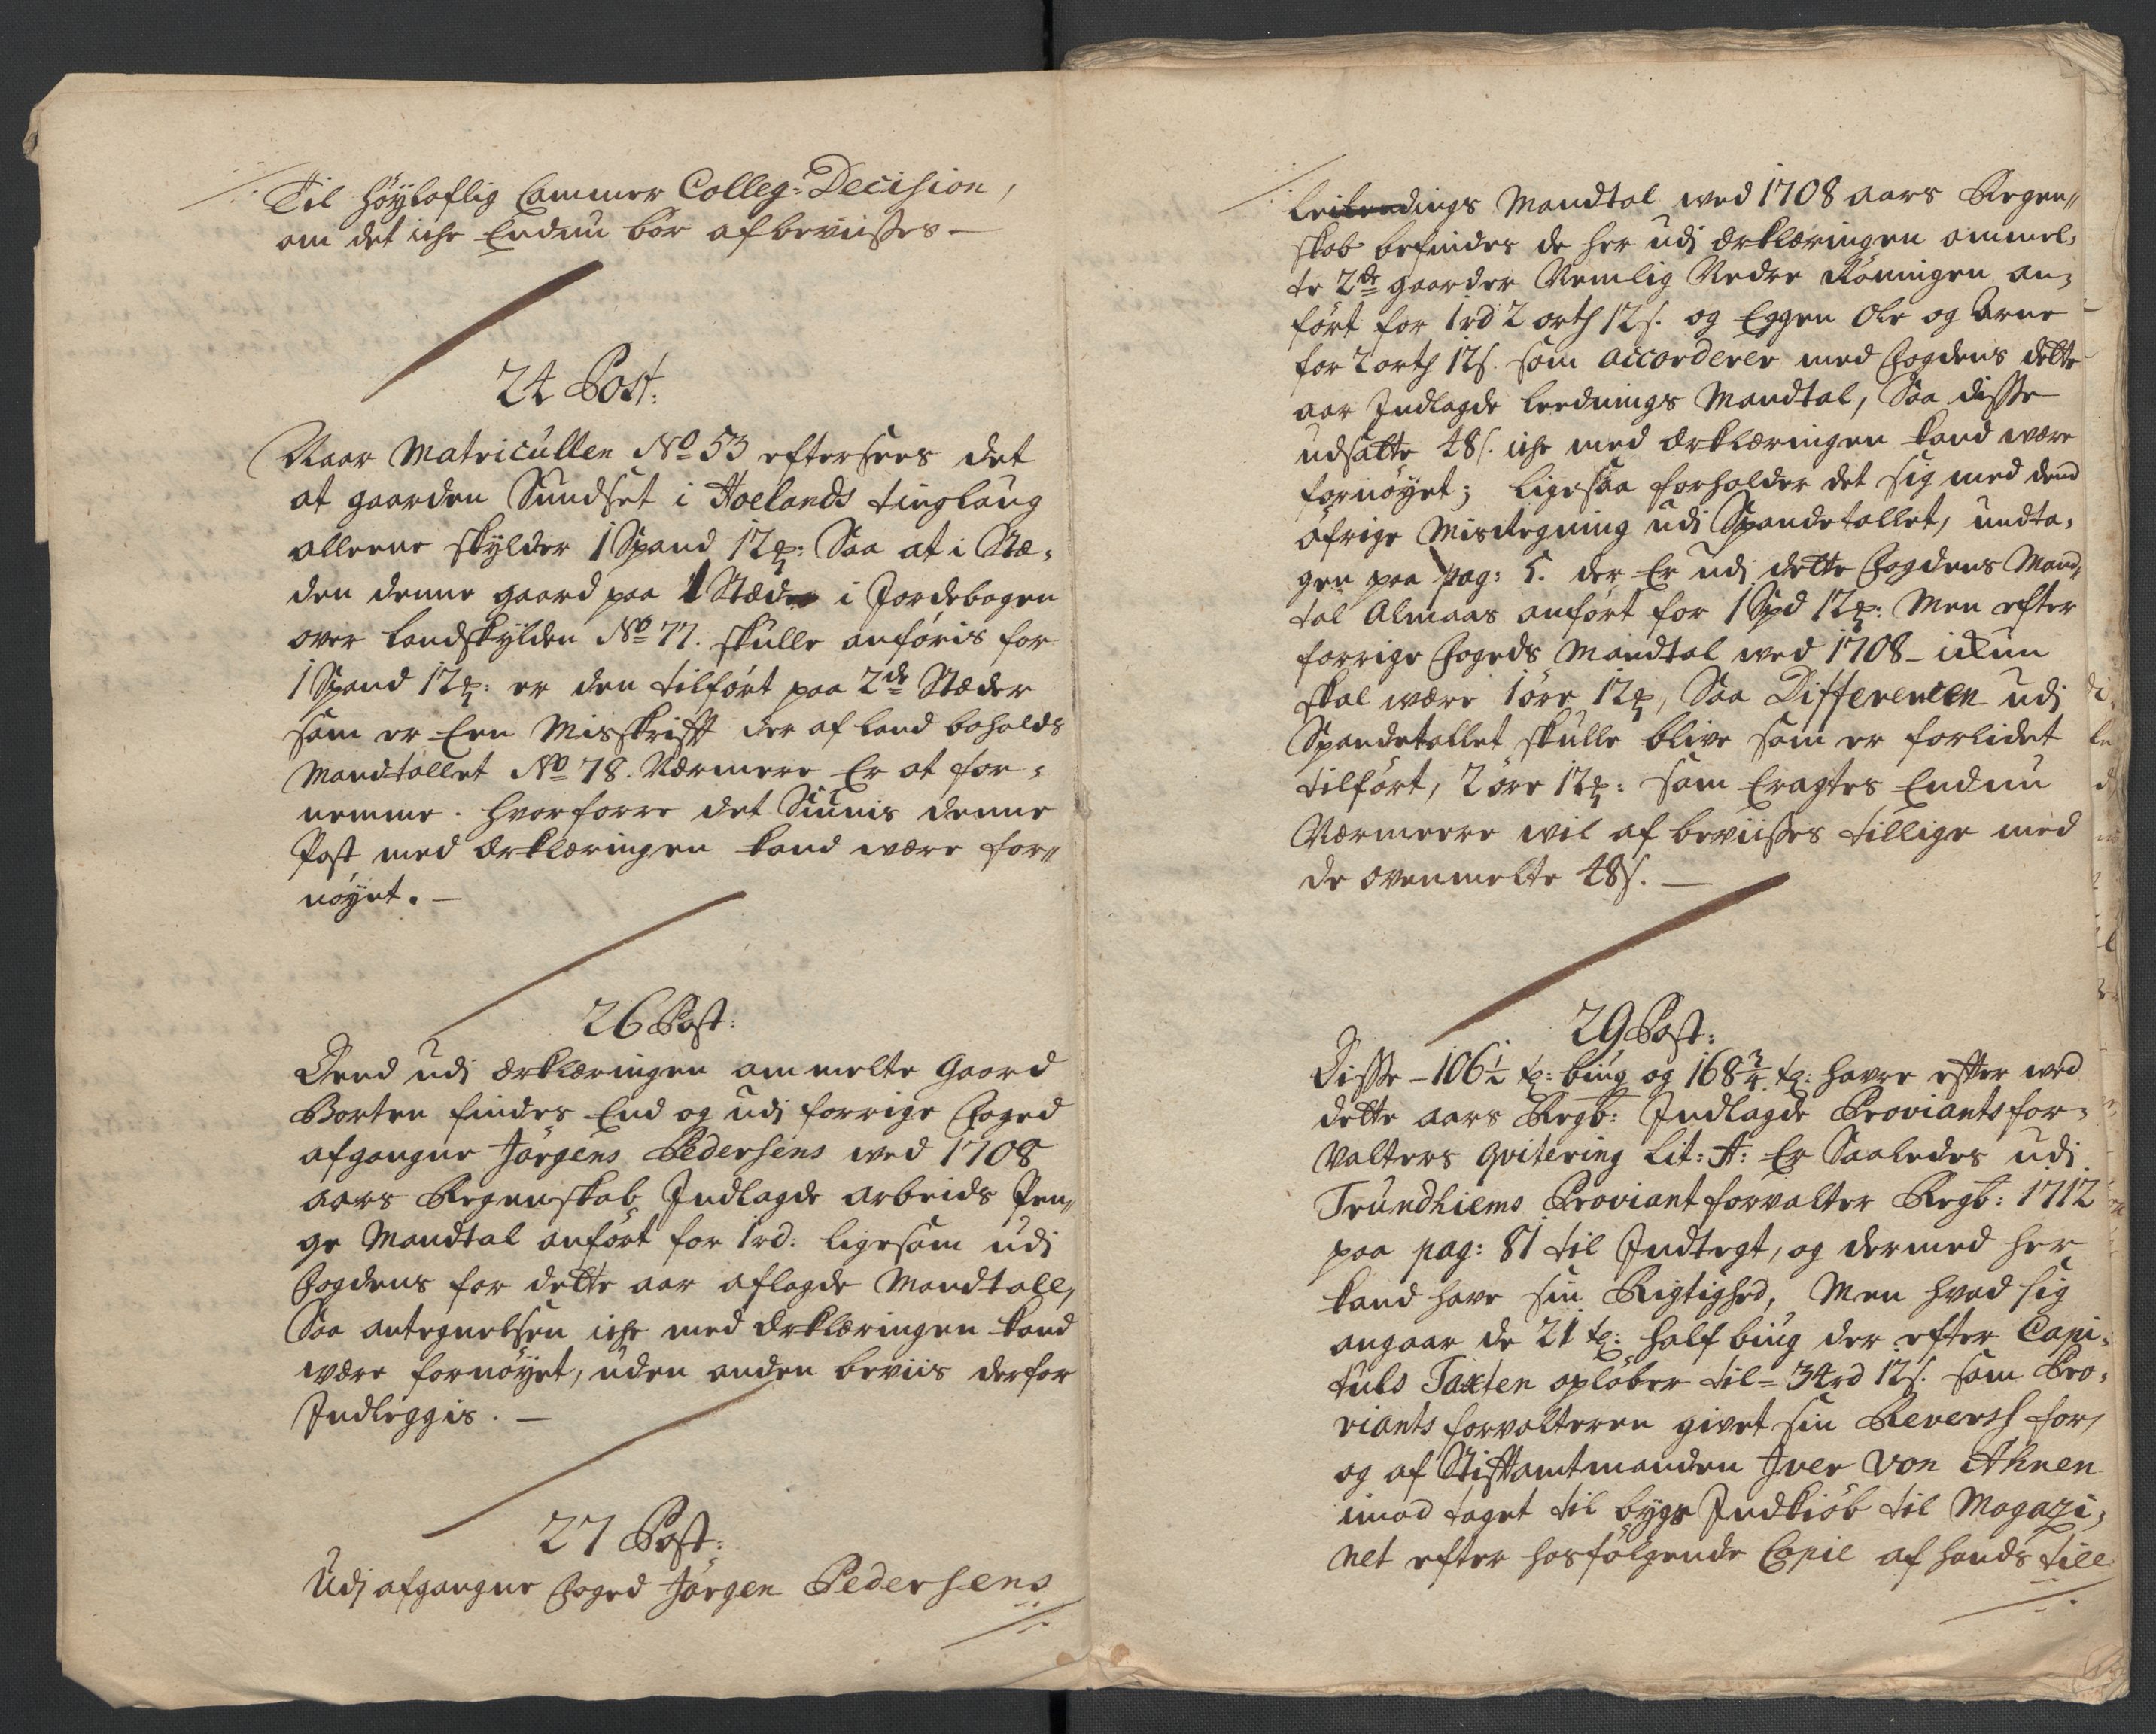 Til Høyloflig Cammer Colleg: Decision,
om det iche Endnu bør afbeviisses —
24 Post:
Naar Matricullen No 53 eftersees det
at gaarden Sundset i Hoelands tinglaug
alleene skylder 1 Spand 12 : Saa at i Stæ-
den denne gaard paa 1 Stæd i Jordebogen
over Landskylden No 77. skulle anføris for
1 Spand 12 : er den tilført paa 2de Stæder
som er Een Misskrifft der af Land boholds
Mandtallet No 78. Nærmere Er at for-
nemme. Hvorforre det Siunis denne
Post med Erklæringen kand være for-
nøyet. —
26 Post:
Dend udj Erklæringen ommelte Gaard
Borten findes End og udj forrige Foged
afgangne Jörgens Pedersens ved 1708
aars Regenskab Indlagde Arbeids Pen-
ge Mandtal anført for 1 rd: ligesom udj
Fogdens for dette aar aflagde Mandtall,
Saa antegnelsen iche med Erklæringen kand
være fornøyet, uden anden beviis derfor
Indleggis. —
27 Post:
Udj afgangne Foged Jörgen Pedersens
Leilendings Mandtal ved 1708 aars Regen-
skab befindes de her udj Erklæringen ommel-
te 2de gaarder Nemlig Nedre Röningen an-
ført for 1 rd 2 orth 12 s. og Eggen Ole og Arne
for 2 orth 12 s. som accorderer med Fogdens dette
aar Indlagde Leednings Mandtal, Saa disse
udsatte 48 s. iche med Erklæringen kand være
fornøyet; ligesaa forholder det sig med dend
öfrige Misregning udj Spandetallet, undta-
gen paa pag: 5. der Er udj dette Fogdens Mand-
tal Almaas anført for 1 Spd 12 : Men efter
forrige Fogeds Mandtal ved 1708 - ikun
skal være 1 öre 12 , Saa Differencen udj
Spandetallet skulle blive som er forlidet
tilført, 2 öre 12 : som Eragtes Endnu
Nærmeere vil af beviisses tillige med
de ovenmelte 48 s. —
29 Post:
Disse - 106 1/2 t: biug og 168 3/4 t: havre efter ved
dette aars Regb: Indlagde Proviantsfor-
valters qvitering Lit: A: Er Saaledes udj
Trundhiems Proviantforvalter Regb: 1712
paa pag: 81 til Indtegt, og dermed her
kand have sin Rigtighed, Men hvad sig
angaar de 21 t: half biug der efter Capi-
tuls Taxten opløber til = 34 rd 12 s. som Pro-
viantsforvalteren givet sin Reversh for,
og af Stiftamtmanden Iver von Ahnen
imod taget til bygs Indkiöb til Magazi-
net efter hosfølgende Copie af hands till